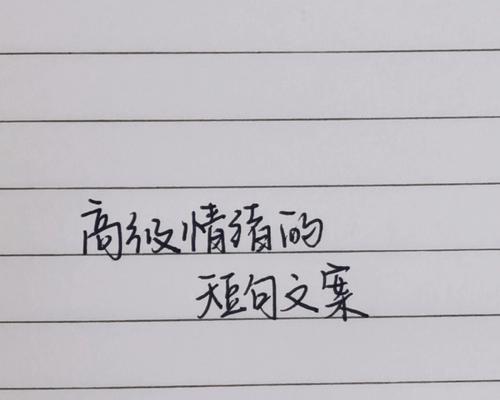 高级情绪的
短句文案